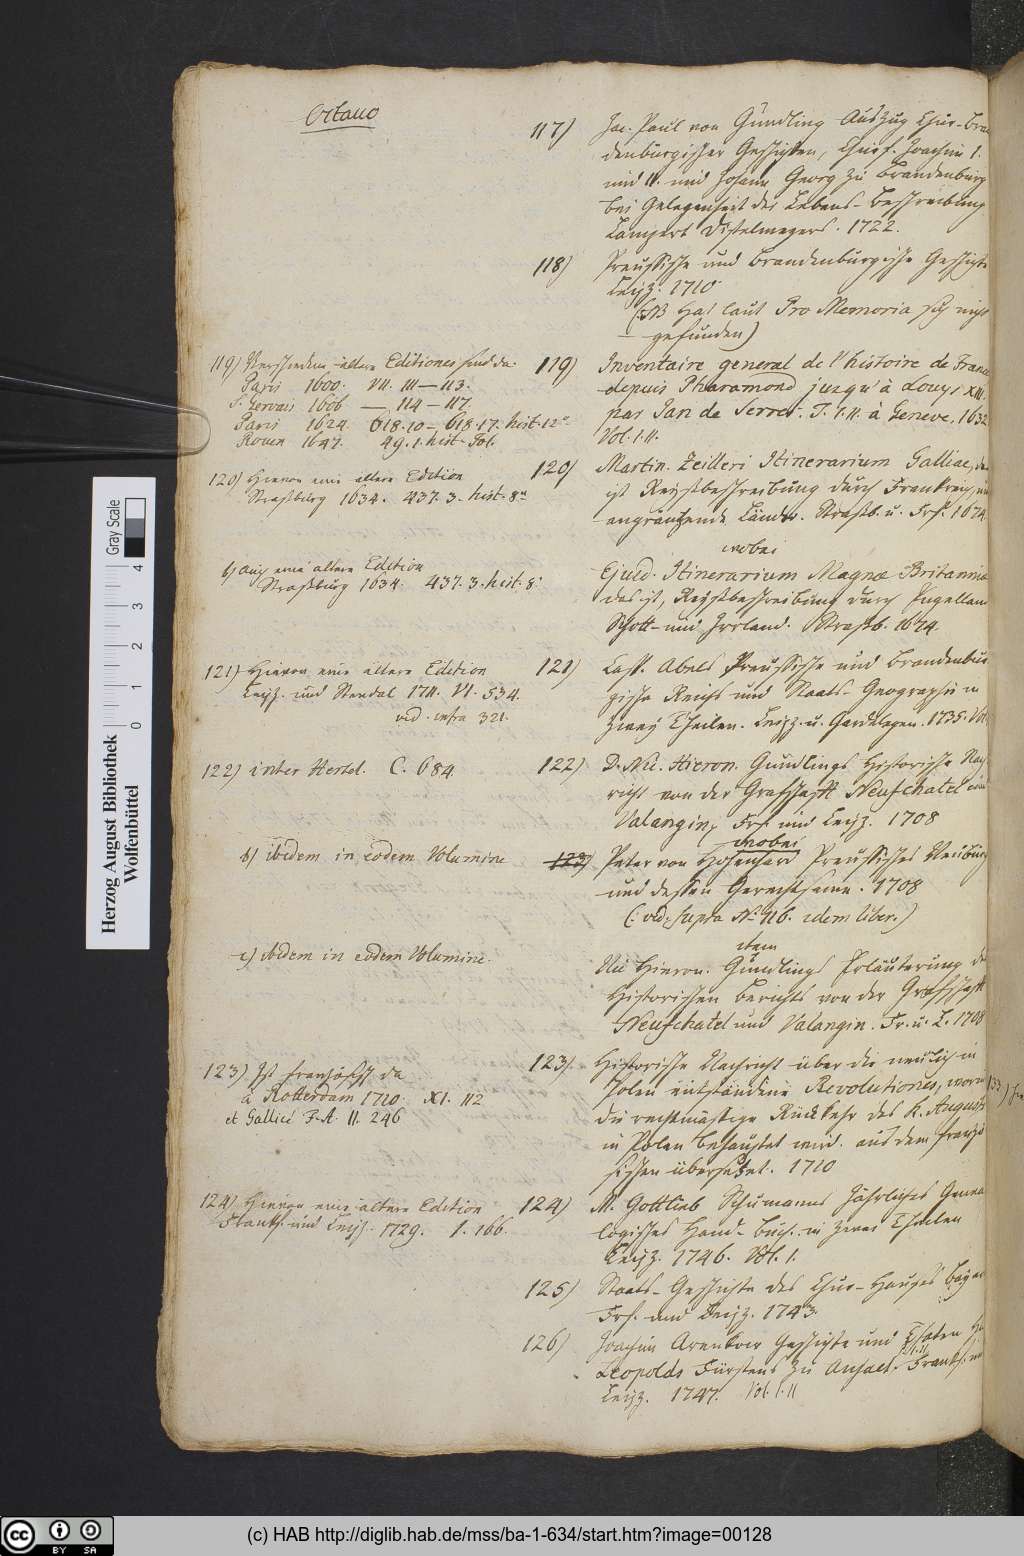 Octavo
117) Jac. Paul von Gundling Auszug Chur-Bran
denburgischer Geschichten, Churf. Joachim I.
und II. und Johann Georg zu Brandenburg
bei Gelegenheit der Lebens-Beschreibung
Lampert Distelmeyers. 1722.
118) Preussische und Brandenburgische Geschichte
Leipz. 1710
(NB hat laut Pro Memoria sich nicht
gefunden)
119) Verschiedene ältere Editiones sind da:
Paris 1600. VII. III—113.
S. Gervais 1606 — 114—117.
Paris 1624. 618.10—618.17. hist. 12°
Rouen 1647. 49.1. hist. Fol.
119) Inventaire general de l'histoire de France
depuis Pharamond jusqu'à Louys XIII.
par Jan de Serres. T. I.II. à Geneve, 1632
Vol. I.II.
120) Hievon eine ältere Edition
Straßburg 1634. 437.3. hist. 8°
120) Martin. Zeilleri Itinerarium Galliae, das
ist Reyßbeschreibung durch Frankreich, und
angräntzende Länder. Straßb. u. Frf. 1674.
wobei
b) auch eine ältere Edition
Straßburg 1634. 437.3. hist. 8°
Ejusd. Itinerarium Magnæ Britanniæ
das ist, Reyßbeschreibung durch Engelland
Schott- und Irrland. Straßb. 1674.
121) Hievon eine ältere Edition
Leipz. und Stendal 1711. VI. 534.
vid. infra 321.
121) Casp. Abels Preussische und Brandenbur
gische Reichs und Staats-Geographie in
zwey Theilen. Leipz. u. Gardelegen. 1735. Vol.
122) inter Hertel. C. 684.
122) D. Nic. Hieron. Gundlings Historische Nach
richt von der Grafschafft Neufchatel und
Valangin, Frf. und Leipz. 1708
wobei
b) ibidem in eodem Volumine
123) Peter von Hohenhard Preussisches Neuburg
und dessen Gerechtsame. 1708
(: vid. supra No. 116. idem liber.)
item
c) ibidem in eodem Volumine.
Nic Hieron. Gundlings Erläuterung des
Historischen Berichts von der Grafschafft
Neufchatel und Valangin. Fr. u. L. 1708
123) Ist französisch da
à Rotterdam 1710. XI. 112
et Gallicè F.A. II. 246
123) Historische Nachricht über die neulich in
Polen entstandene Revolutiones, worin
die rechtmäßige Rückkehr des K. Augusts
in Polen behauptet wird. aus dem franzö
sischen übersetzet. 1710
124) Hievon eine ältere Edition
Frankf. und Leipz. 1729. I. 166.
124) M. Gottlieb Schumanns Jährliches Genea
logisches Hand-Buch. in zwei Theilen
Leipz. 1746. Vol. I.
125) Staats-Geschichte des Chur-Hauses Bayern
Frf. und Leipz. 1743.
126) Joachim Geschichte und Thaten
Leopolds Fürstens zu Anhalt. Frankf. und
Leipz. 1747. Vol. I.II
Herzog August Bibliothek
Wolfenbüttel
Gray Scale
0 1 2 3 4
cc BY SA
(c) HAB http://diglib.hab.de/mss/ba-1-634/start.htm?image=00128